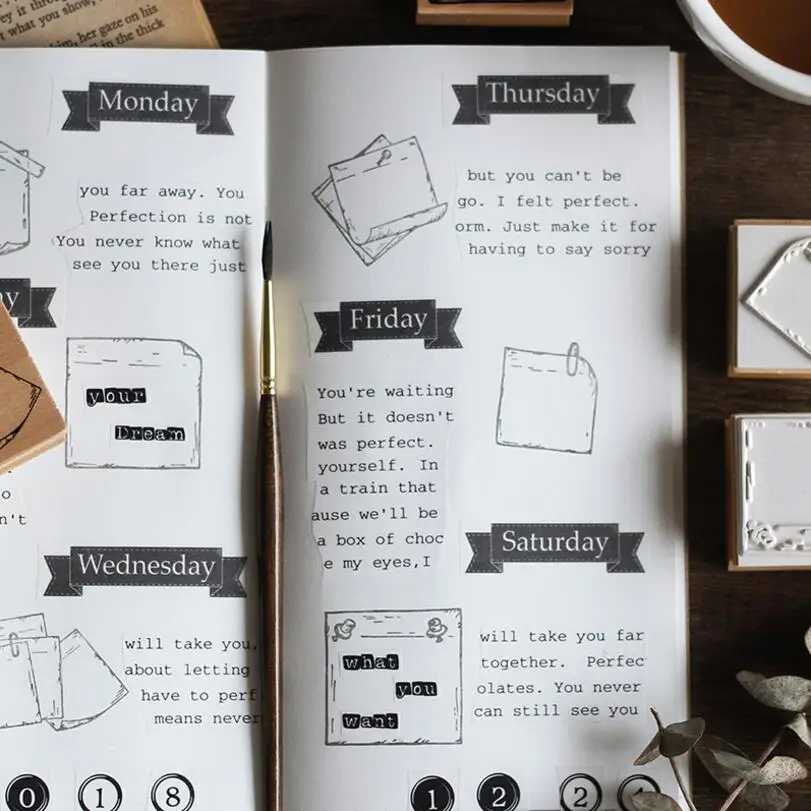 rey it through
t what you show,
him, her gaze on his
in the thick
Monday
you far away. You
Perfection is not
You never know what
see you there just
y
your
Dream
o
n't
Wednesday
will take you,
about letting
have to perf
means never
0 1 8
Thursday
but you can't be
go. I felt perfect.
orm. Just make it for
having to say sorry
Friday
You're waiting
But it doesn't
was perfect.
yourself. In
a train that
ause we'll be
a box of choc
e my eyes,I
Saturday
what
you
want
will take you far
together. Perfec
olates. You never
can still see you
1 2 2 4